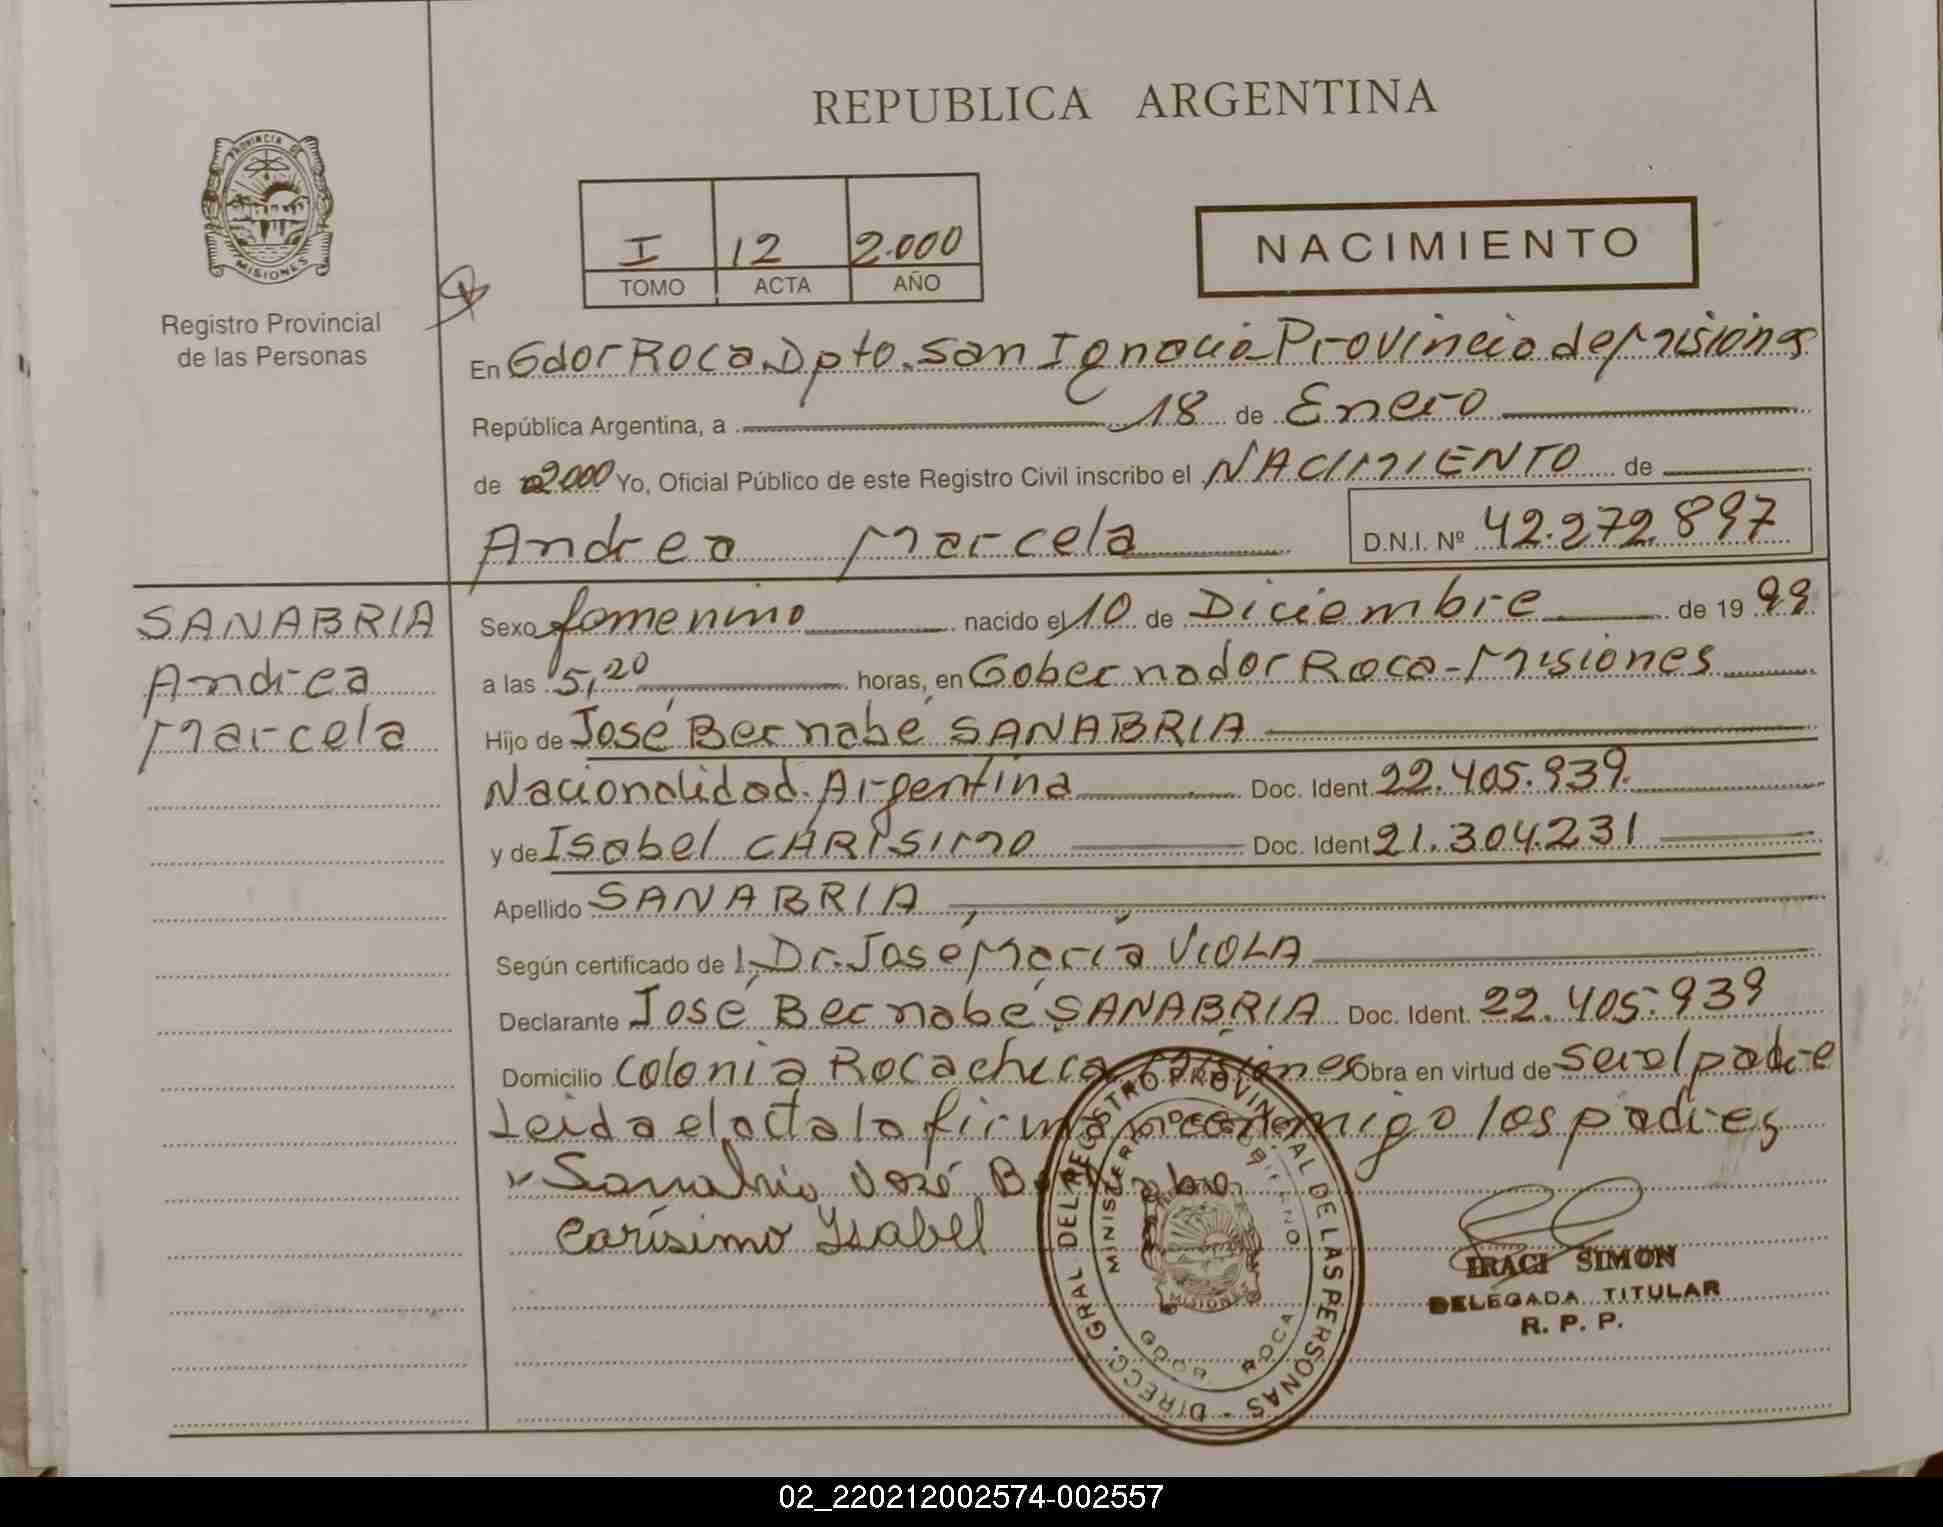 REPUBLICA ARGENTINA
PROVINCIA DE
MISIONES
Registro Provincial
de las Personas
I 12 2.000
TOMO ACTA AÑO
NACIMIENTO
En Gdor Roca Dpto. San Ignacio Provincia de Misiones
República Argentina, a 18 de Enero
de 2000 Yo, Oficial Público de este Registro Civil inscribo el NACIMIENTO de
Andrea Marcela D.N.I. Nº 42.272.897
SANABRIA
Andrea
Marcela
Sexo femenino nacido el 10 de Diciembre de 19 99
a las 5,20 horas, en Gobernador Roca - Misiones
Hijo de José Bernabé SANABRIA
Nacionalidad Argentina Doc. Ident. 22.405.939.
y de Isabel CARISIMO Doc. Ident 21.304.231
Apellido SANABRIA
Según certificado de l, Dr. José María VIOLA
Declarante José Bernabé SANABRIA Doc. Ident. 22.405.939
Domicilio Colonia Roca chica Misiones Obra en virtud de ser el padre
Leida el acta la firman conmigo los padres
Sanabria José Bernabe
Carísimo Ysabel
DIRECC. GRAL DEL REGISTRO PROVINCIAL DE LAS PERSONAS
MINISTERIO DE GOBIERNO
MISIONES
GDOR. ROCA
IRACI SIMON
DELEGADA TITULAR
R. P. P.
02_220212002574-002557